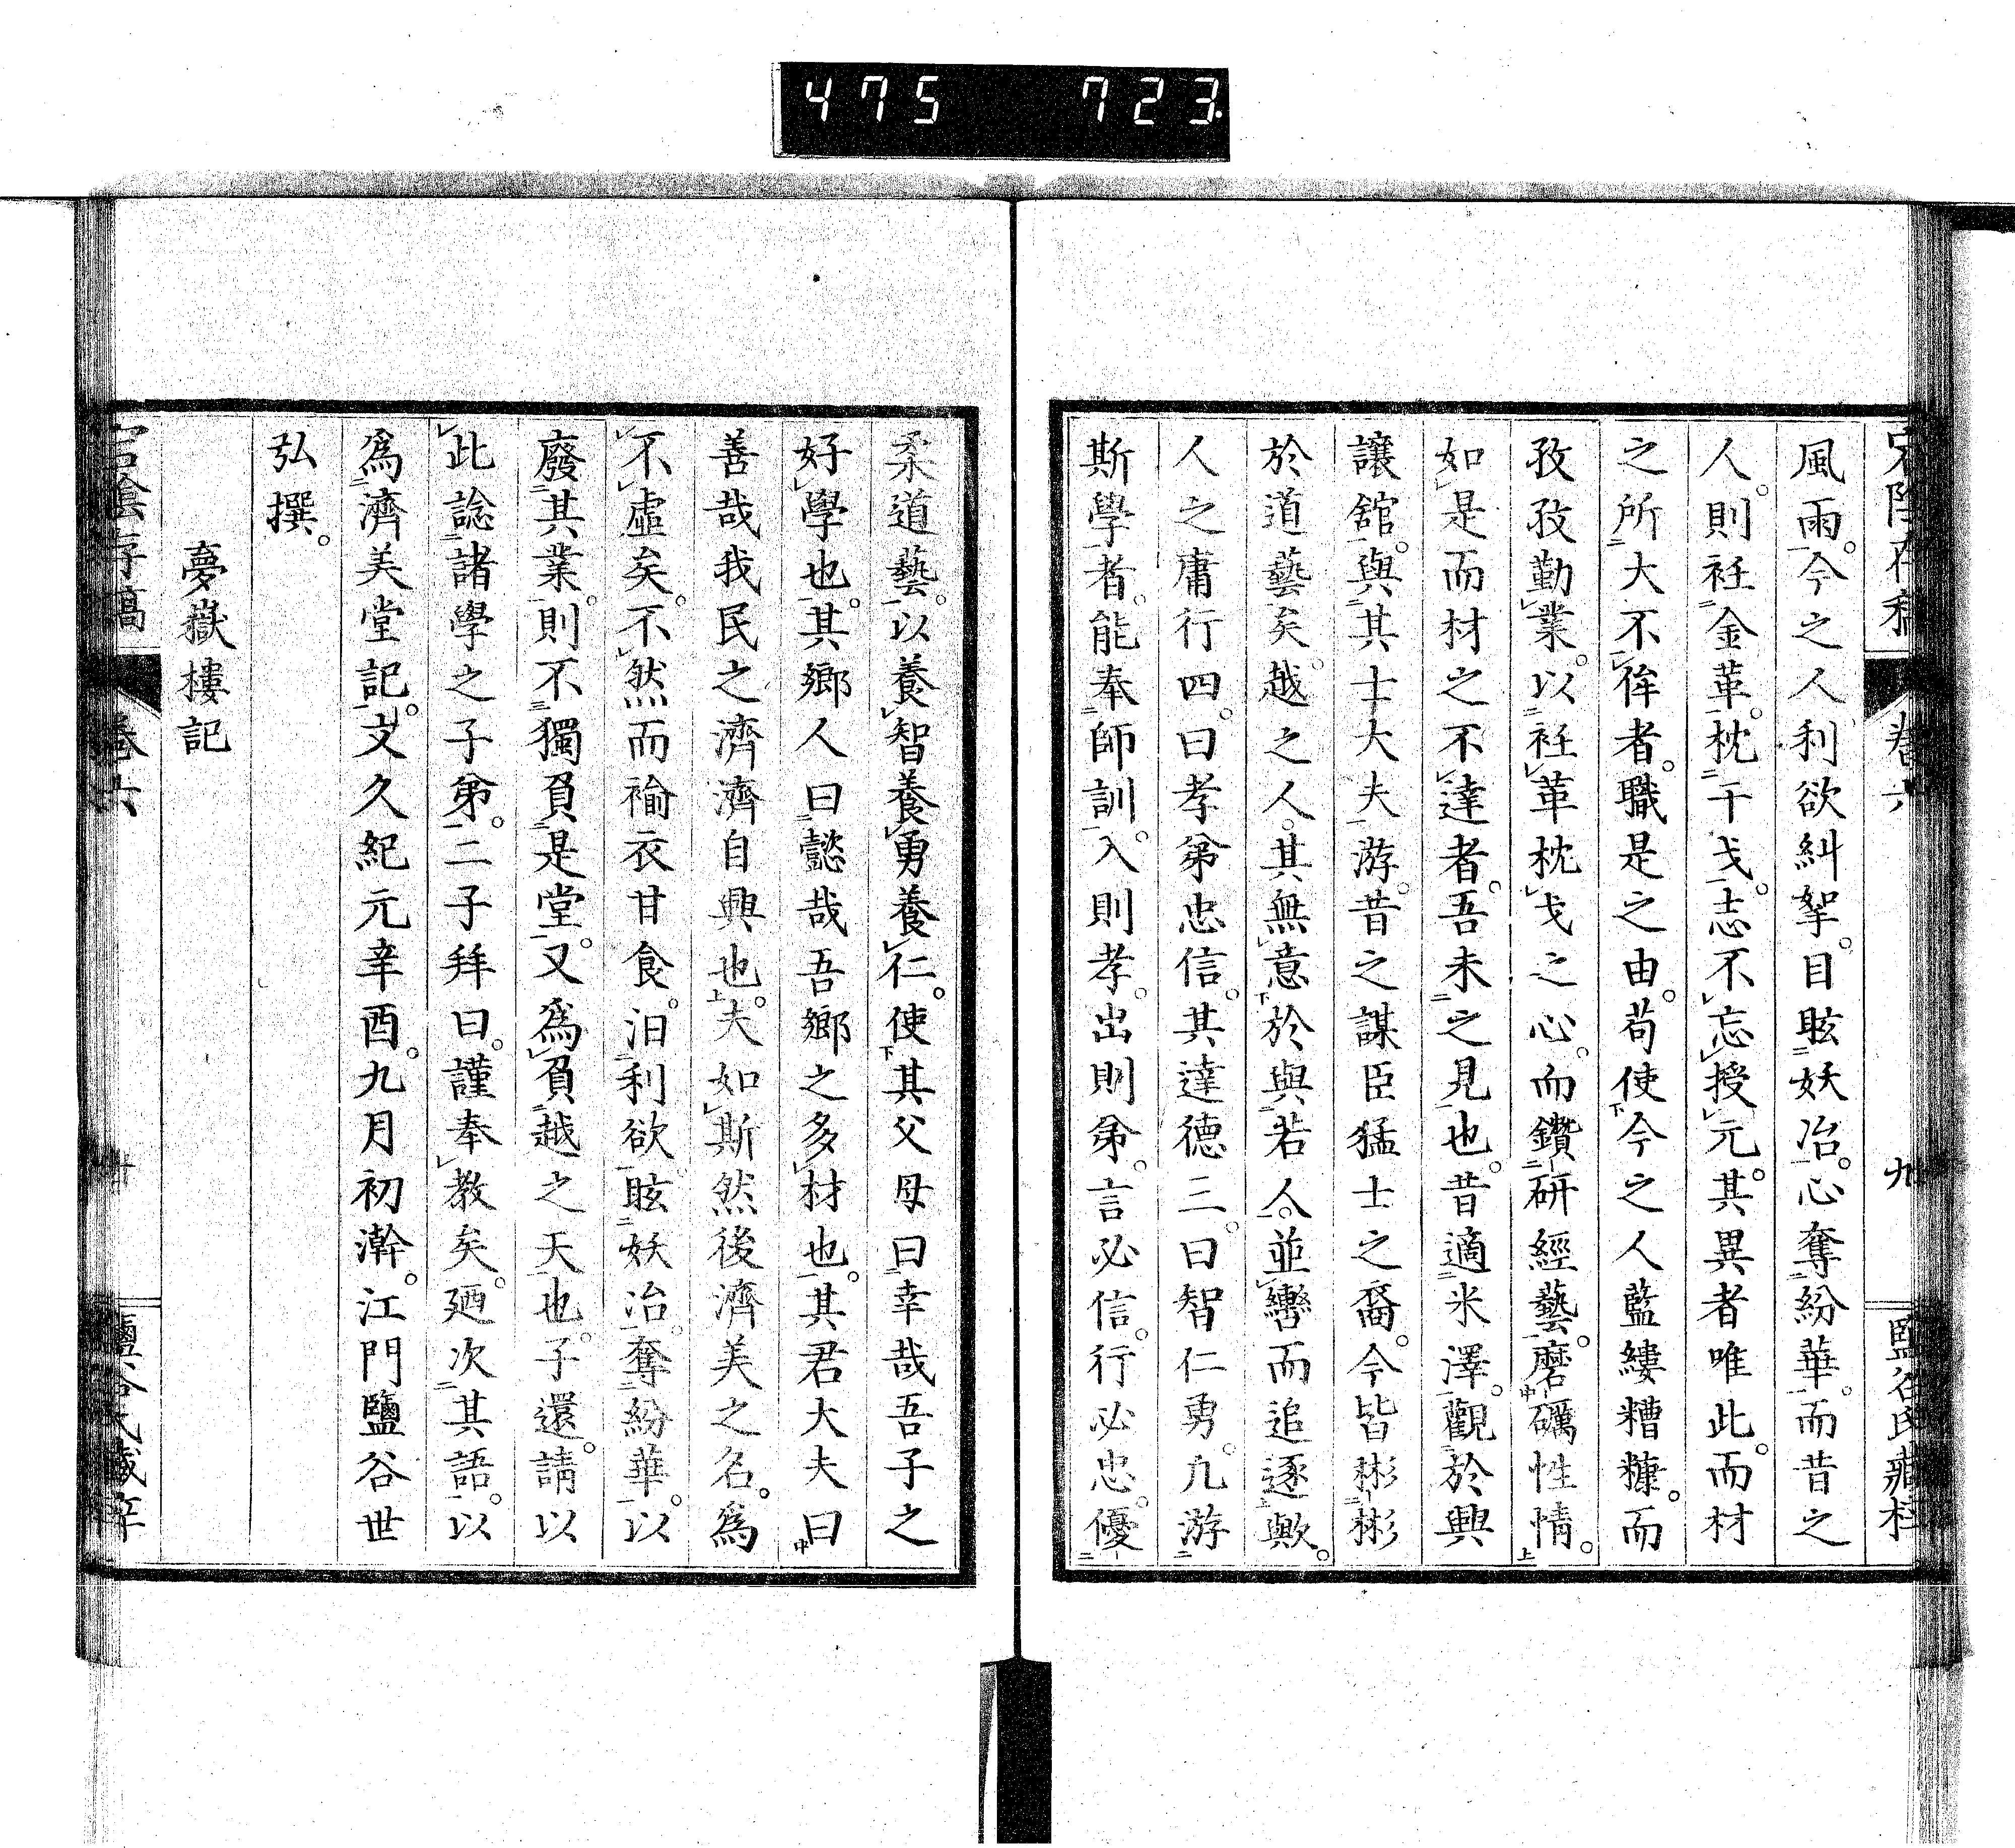 475 723.
宕陰存稿 卷六 九 鹽谷氏藏梓
風雨。今之人利欲糾挐。目眩妖冶。心奪紛華。而昔之
人。則衽金革。枕干戈。志不忘授元。其異者唯此。而材
之所大不侔者。職是之由。苟使今之人藍縷糟糠。而
孜孜勤業。以衽革枕戈之心。而鑽研經藝。磨礪性情。
如是而材之不達者。吾未之見也。昔適米澤。觀於興
讓舘。與其士大夫游。昔之謀臣猛士之裔。今皆彬彬
於道藝矣。越之人。其無意於與若人。並轡而追逐歟。
人之庸行四。曰孝弟忠信。其達德三。曰智仁勇。凢游
斯學者。能奉師訓。入則孝。出則弟。言必信。行必忠。優
柔道藝。以養智養勇養仁。使其父母曰幸哉吾子之
好學也。其鄉人曰懿哉吾鄉之多材也。其君大夫曰
善哉我民之濟濟自興也。夫如斯然後濟美之名。爲
不虛矣。不然而褕衣甘食。汩利欲眩妖冶。奪紛華。以
廢其業。則不獨負是堂。又爲負越之天也。子還。請以
此諗諸學之子弟。二子拜曰。謹奉教矣。廼次其語。以
爲濟美堂記。文久紀元辛酉。九月初澣。江門鹽谷世
弘撰。
夢嶽樓記
宕陰存稿 卷六 鹽谷氏藏梓